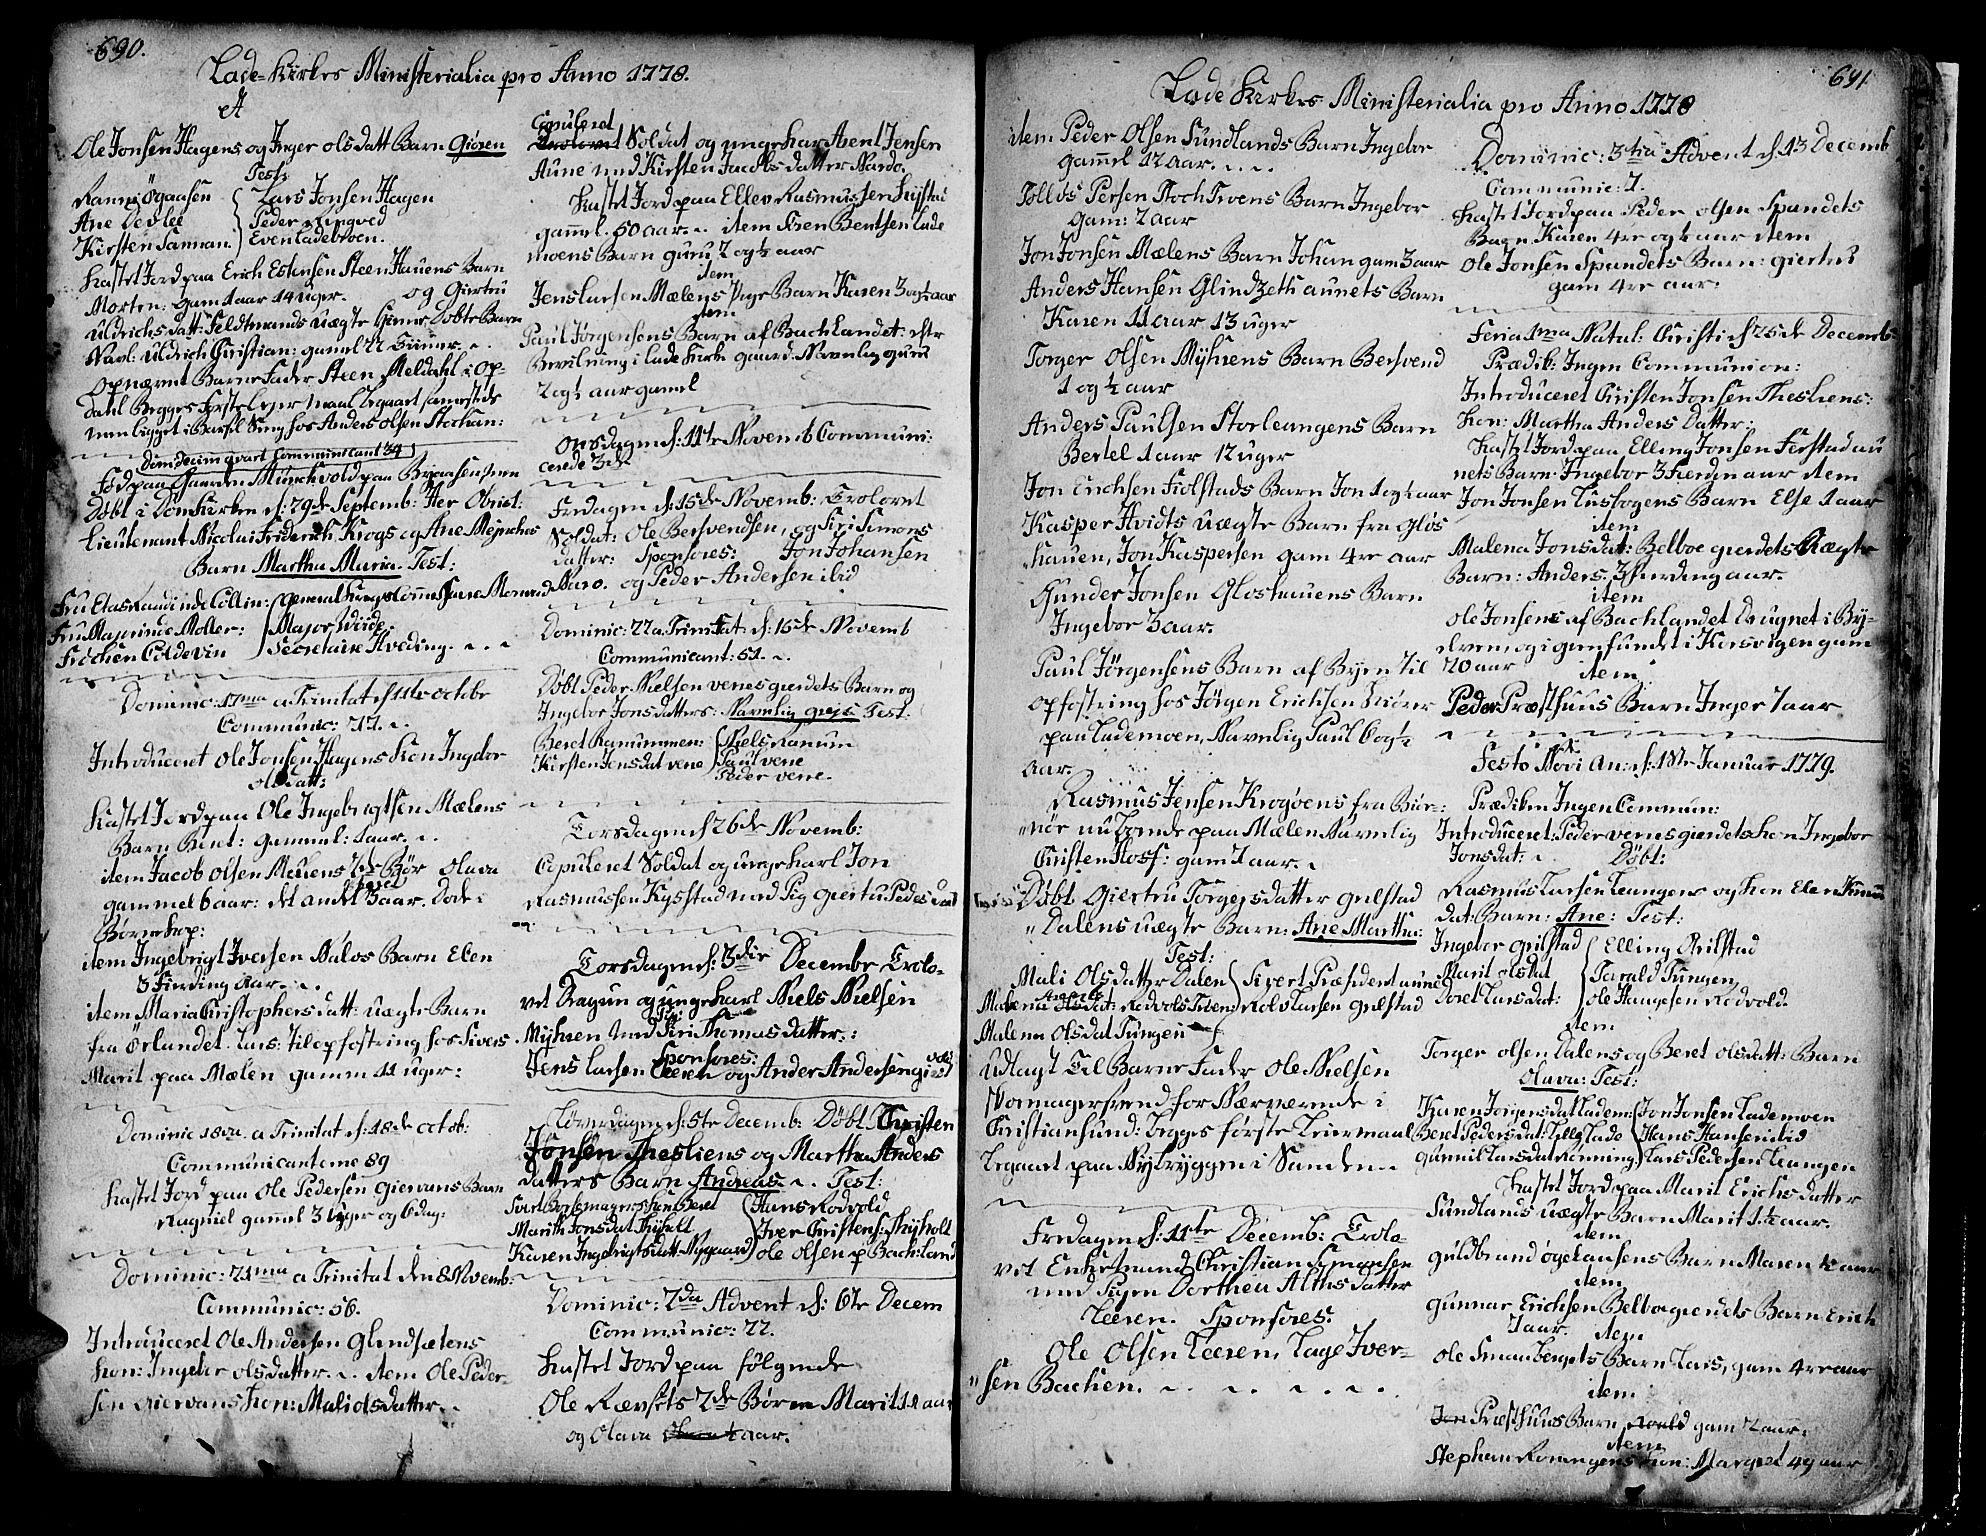 690.
Lade-Kirkes Ministerialia pro Anno 1778.
A
Ole Jonsen Hagens og Inger olsdatt Barn Giøren
Test:
Ranni Øgaasen { Lars Jonsen Hagen
Ane Devlee { Peder Ringved
Kirsten Sannan. } Even Ladeboen.
Kastet Jord paa Erich Estensen Steen Hauens Barn
Morten: gam 1 aar 14 uger. og Giertru
Uldrichs datt: Feldtmands uægte hieme Døbte Barn
Navl: Uldrich Christian: gamel 22
opnævnt Barne Fader Steen Meldahl i Op-
dahl Begges Første Leyermaal begaaet sammesteds
men ligget i Barsel Seng hos Anders olsen Stochan:
Dom: decim qvart Communicant 134
Fød paa Gaarden Münchvold paa Byaasen men
Døbt i DomKirken d: 29de Septemb: Her Obrist:
Lieutenant Nicolai Friderich Krogs og Ane Meinches
Barn Martha Maria. Test:
Frue Majorinde Møller: } Major Wiide
Frøchen Coldevin } Secretaire Hveding.
Dominic: 17ma a Trinitat d 11te octobr
Communic: 77.
Introduceret Ole Jonsen Hagens Kon Ingebor
olsdatt:
Kastet Jord paa Ole Ingebrigtsen Mælens
Barn Beret: gammel: 1 aar.
item Jacob olsen Melens 2de Bør Olava
gammel 6 aar: det andet Beret 3 aar. Døde i
Børnekop:
item Ingebrigt Iversen Nalos Barn Elen
3 Fierding Aar.
item Maria Christophersdatt: uægte Barn
fra Ørlandet. Lars: til opfostring hos Sivers
Marit paa Mælen gamm 11 uger:
Dominic 18va a Trinitat d: 18de octob:
Communicanterne 89
Kastet Jord paa Ole Pedersen Giervans Barn
Ragniel gammel 3 uger og 6 dag:
Dominic: 21ma a Trinitat den 8 Novemb:
Communic: 56.
Introduceret Ole Andersen Glendsætens
Kon: Ingebor olsdatter. item Ole Peder-
sen Giervans Kon: Mali olsdatter.
Copuleret
Soldat og unge karl Arent Jensen
Aune med Kirsten Jacobs datter Nardo.
Kastet Jord paa Ellev Rasmussen
gammel. 50 aar. item Siven Bentsen Lade
moens Barn Guru 2 og ½ aar
item
Jens Larsen Mælens Pige Barn Karen 3 og ½ aar
item
Paul Jørgensens Barn af Bachlandet: efter
Bevilning i Lade Kirke gaard. Navnlig Guru
2 og ½ aar gamel
Onsdagen d: 11te Novemb Communi:
cerede 3de
Fredagen d: 15de Novemb: Troloret
Soldat: Ole Bersvendsen, og Siri Simons
datter: Sponsores: Jon Johansen
Naro. og Peder Andersen ibid
Dominic: 22a Trinitat: d: 15de Novemb
Communicant: 51.
Døbt Peder Nielsen venesgierdets Barn og
Ingebor Jonsdatters: Navnlig Test:
Beret Ranummen: { Niels Ranum
Kirsten Jensdat vene } Paul vene
Peder vene.
Torsdagen d 26de Novemb:
Copuleret Soldat og unge karl Jon
Rasmussen Kysstad med Pig Giertru Peders
Torsdagen d: 3die Decembr Trolo-
vet Dragun og unge karl Niels Nielsen
Myhren med Siri Thomas datter:
Sponsores:
Jens Larsen Leeren og Ander Andersen
Løverdagen d: 5te Decemb: Døbt Christen
Jonsen Thesliens og Martha Anders
datters Barn Andreas. Test:
Marith Jonsdat { Hans Rodvold
Karen Ingebrigtsdatt Nygaard } ole olsen p Bach: land
Dominic: 2da Advent d: 6te Decem
Communic: 22.
Kastet Jord paa følgende
Ole Ravsets 2de Børn Marit 11 aar
og Olava aar.
691
Lade Kirkes Ministerialia pro Anno 1778
item Peder Olsen Sundlands Barn Ingebor
gamel 12 aar.
Tollos Persen Stoch Troens Barn Ingebor
gam: 2 aar
Jon Jonsen Mælens Barn Johan gam 3 aar
Anders Hansen Glindzeth aunets Barn
Karen 11 aar 13 uger
Torger Olsen Myhrens Barn Bersvend
1 og ½ aar
Anders Paulsen Storleungens Barn
Bertel 1 aar 12 uger
Jon Erichsen Fiolstads Barn Jon 1 og ½ aar
Kasper Hvidts uægte Barn fra Gløs
hauen, Jon Kaspersen gam 4re aar
Gunder Jonsen Gloshauens Barn
Ingebor 3 aar.
Paul Jørgensens Barn af Byen til
opfostring hos Jørgen Erichsen
paa Lademoen, Navnlig Paul 6 og ½
aar.
Rasmus Jensen Krogøens fra Bør-
nør nu boende paa Mælen Navnlig
Christen Hoss: gam 2 aar.
Døbt Giertru Torgersdatter Grilstad
Dalens uægte Barn: Ane Martha:
Test:
Mali Olsdatter Dalen { Sivert Præsident aune
Malena dat: Rodvols Tieen } Rols Larsen Grilstad
Malena Olsdat Tungen
Udlagt Til Barne Fader Ole Nielsen
Skomagersvend for Nærværende i
Christiansund: begges første Leiermaal
begaaet paa Nybryggen i Sanden.
Fredagen d: 11te Decemb: Trolo-
vet Enkemand Christian Simonsen
med Pigen Dorthea Althsdatter
Leeren. Sponsores:
Ole Olsen Leeren, Lage Iver-
sen Bachen.
Dominic: 3tia Advent d: 13 Decemb
Communic: 7.
Kastet Jord paa Peder olsen Spandets
Barn Karen 4re og ½ aar item
Ole Jonsen Spandets Barn: Giertru
gam 4re aar:
Feria 1ma Natal: Christi d 25de Decemb:
Prædik: Ingen Communion:
Introduceret Christen Jonsen Thesliens:
Kon: Martha Anders Datter:
Kastet Jord paa Elling Jonsen Ferstad au
nets Barn: Ingebor 3 Fierdn aar item
Jon Jonsen Lusbogens Barn Else 1 aar
item
Malena Jonsdat: Belboe gierdets uægte
Barn: Anders. 3 Fierding aar.
item
ole Jonsens af Bachlandet Drugnet i By-
elven, og igienfundet i Korsvigen gam
20 aar item
Peder Præsthuus Barn Inger 7 aar
Festo Novi An: d: 1ste Januar 1779.
Prædiken Ingen Commun:
Introduceret: Peder venesgierdets kon Ingebor
Jonsdat: Døbt:
Rasmus Larsen Leangens og kon Elen
dat: Barn: Ane: Test:
Ingebor Grilstad { Elling Grilstad
Marit olsdat { Tarald Tungen
Doret Larsdat: } ole Haagesen Rodvold.
item
Torger olsen Dalens og Beret olsdatt: Barn
Olava: Test:
Karen Jørgensdat Ladem: { Jon Jonsen Lademoen
Beret Pedersdat: Lille Lade { Hans Hansen ibid
Gunnil Larsdat Rønning } Lars Pedersen Leangen
Kastet Jord paa Marit Erichs datter
Sundlands uægte Barn Marit 1.½ aar.
item
Guldbrand øgelansens Barn Maren ½ aar
item
Gunnar Erichsen Belboegierdets Barn Erich
7 aar. item
Ole Smaabergets Barn Lars, gam 4re aar
item
Jon Præsthuus Barn gam 2 aar:
item
Stephan Rønningens kon: Margret 49 aar